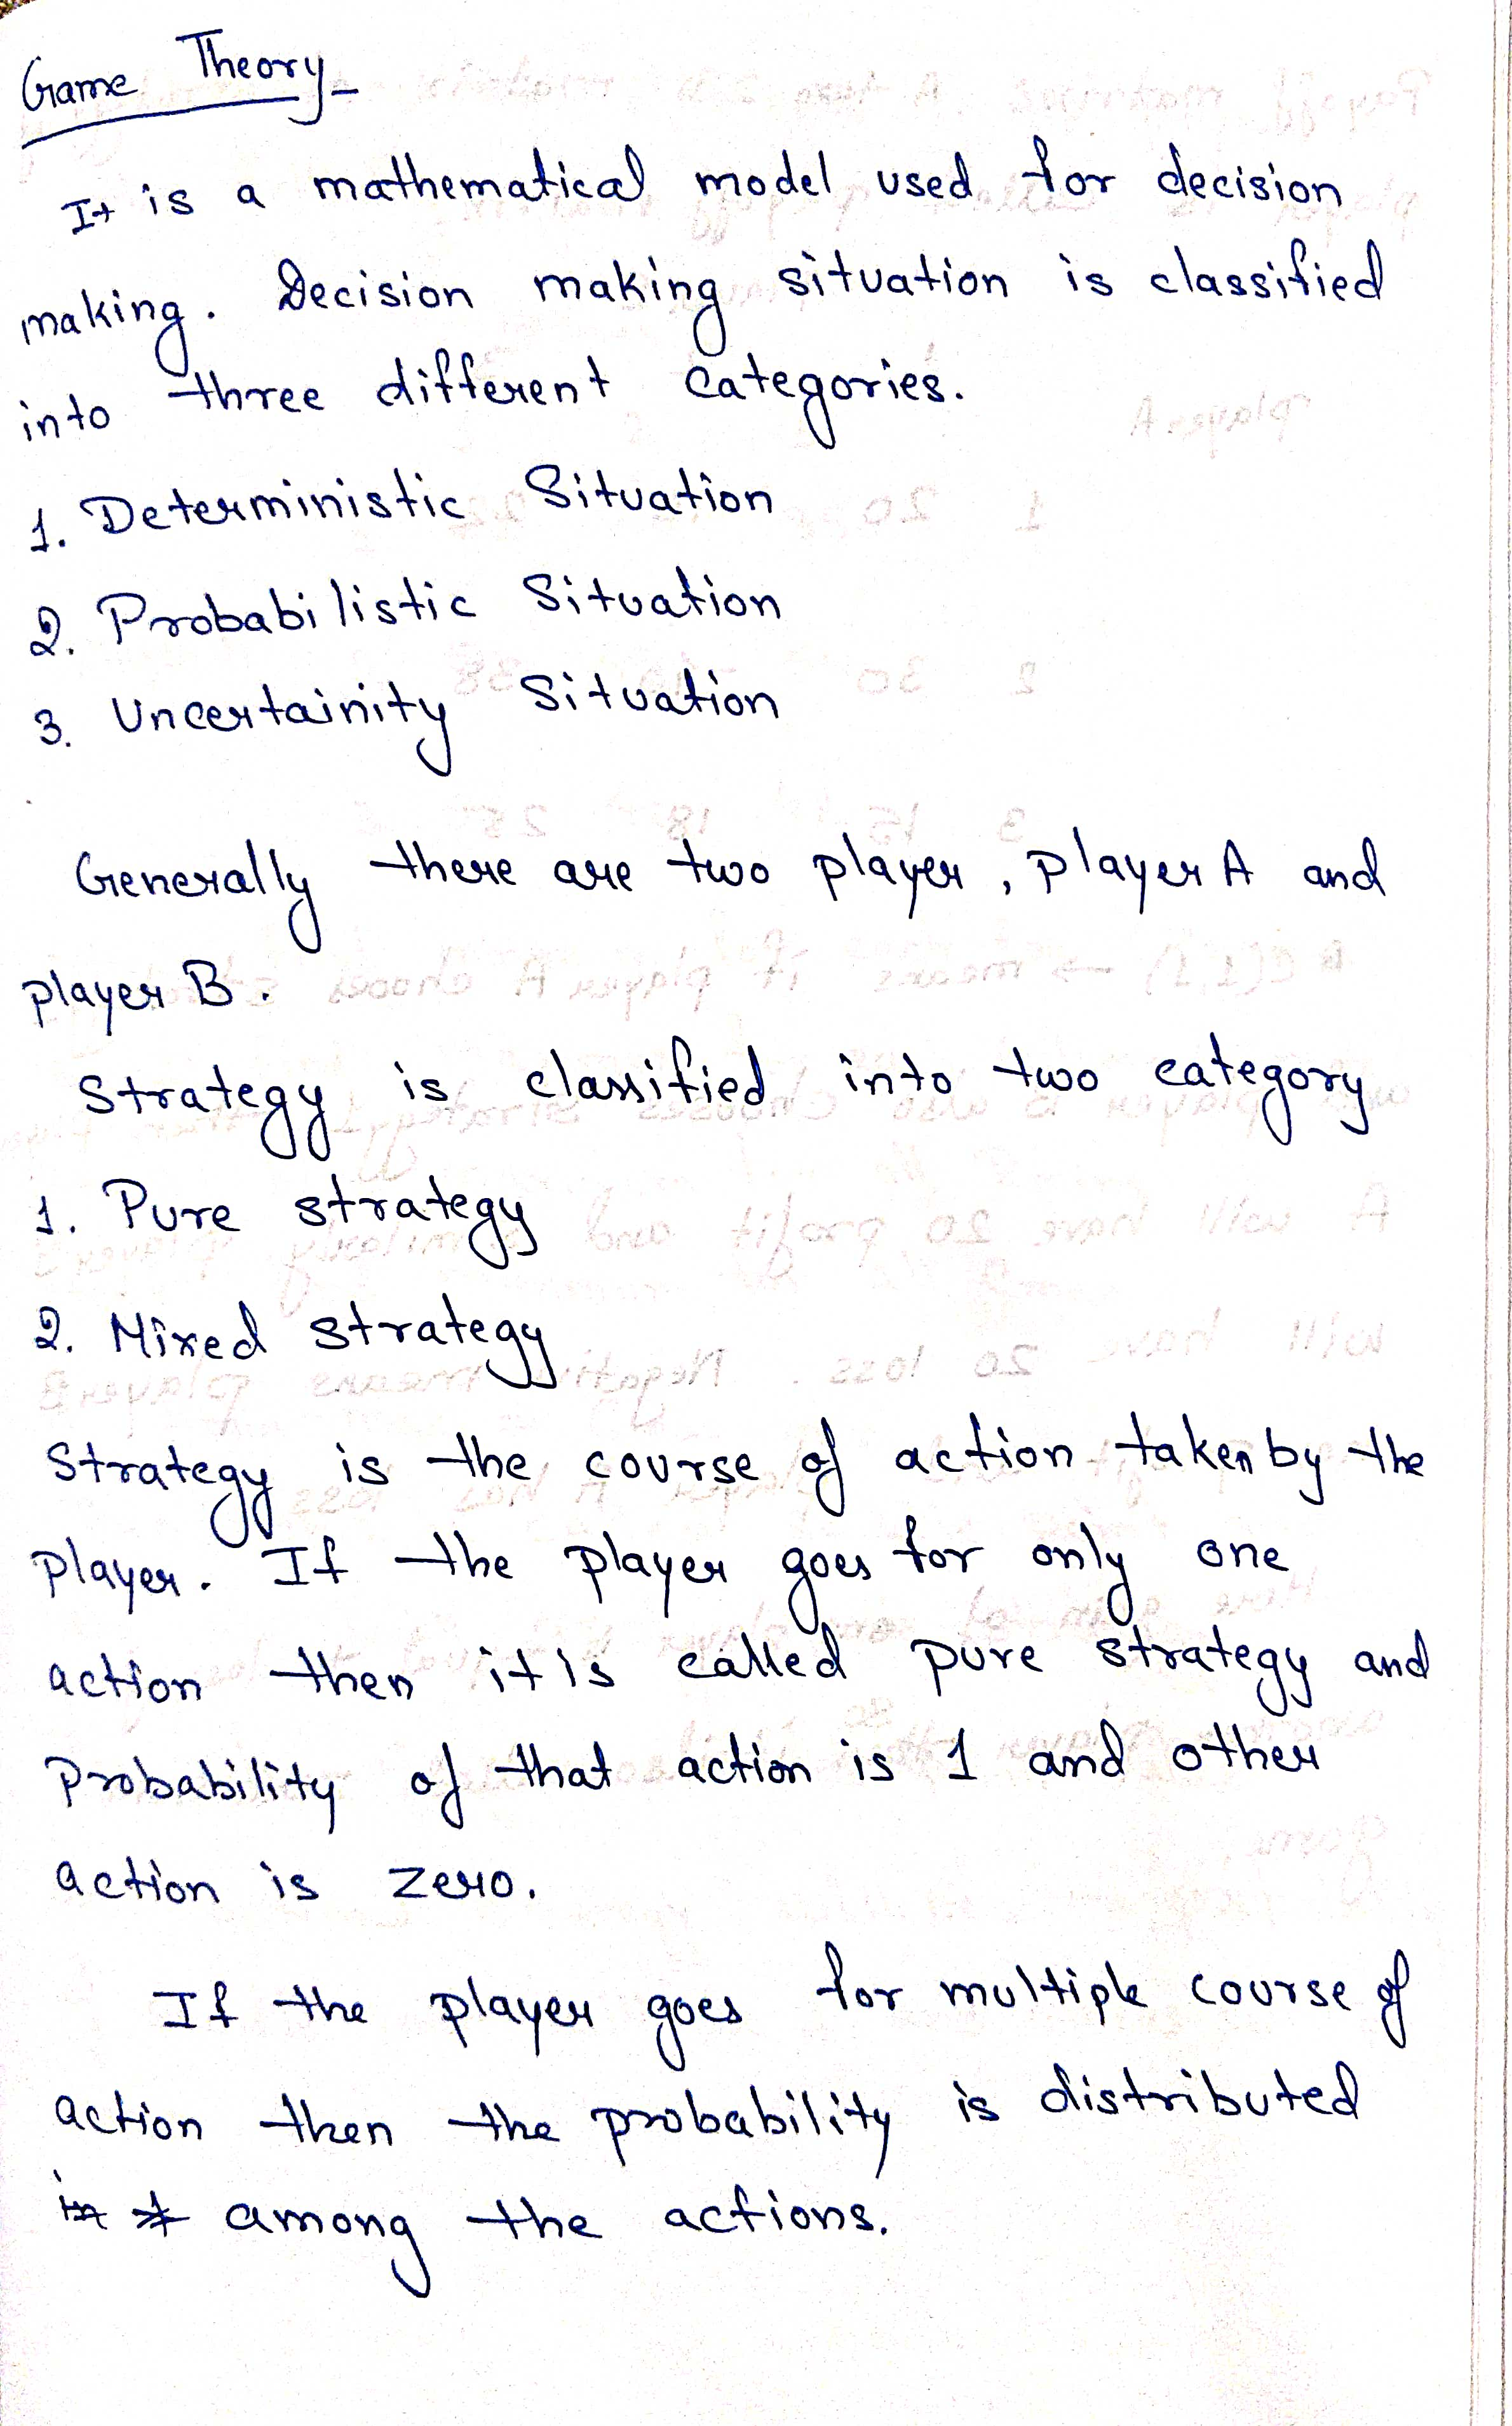 Game Theory-
It is a mathematical model used for decision
making. Decision making situation is classified
into three different categories.
1. Deterministic Situation
2. Probabilistic Situation
3. Uncertainity Situation
Generally there are two player, player A and
player B.
Strategy is classified into two category
1. Pure strategy
2. Mixed strategy
Strategy is the course of action taken by the
player. If the player goes for only one
action then it is called pure strategy and
probability of that action is 1 and other
action is zero.
If the player goes for multiple course of
action then the probability is distributed
among the actions.